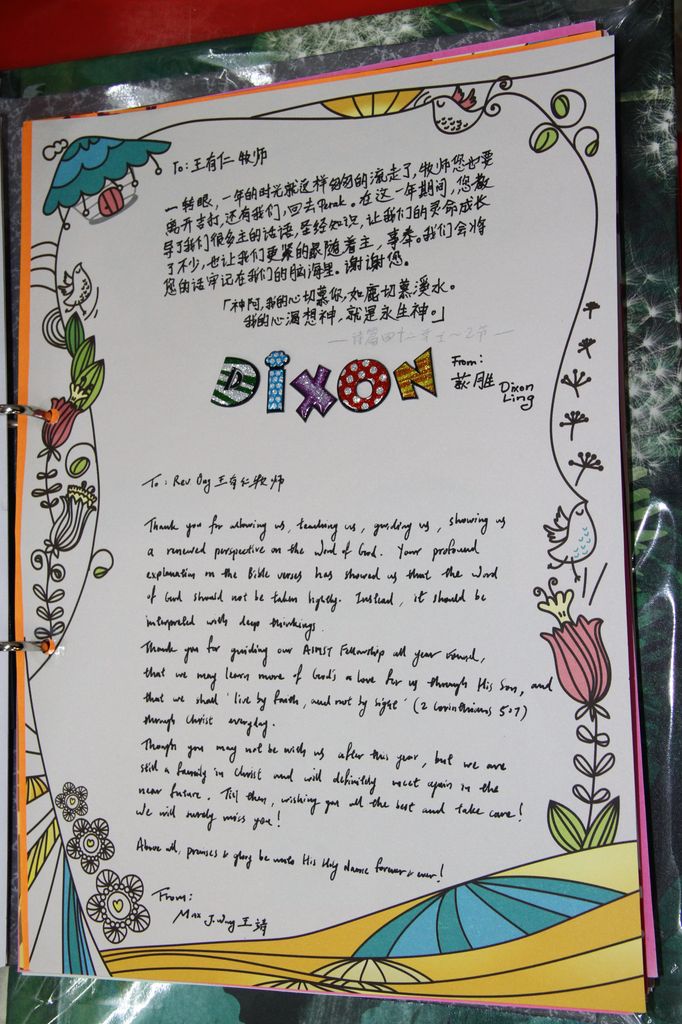 To: 王有仁 牧师
一转眼，一年的时光就这样匆匆的流走了，牧师您也要
离开吉打，还有我们，回去Perak。在这一年期间，您教
导了我们很多主的话语，圣经知识，让我们的灵命成长
了不少，也让我们更紧的跟随着主，事奉。我们会将
您的话牢记在我们的脑海里。谢谢您。
「神阿，我的心切慕你，如鹿切慕溪水。
我的心渴想神，就是永生神。」
— 诗篇四十二章1~2节 —
DIXON
From:
胜 Dixon
Ling
To: Rev Ong 王有仁牧师
Thank you for allowing us, teaching us, guiding us, showing us
a renewed perspective on the Word of God. Your profound
explanation on the Bible verses has showed us that the Word
of God should not be taken lightly. Instead, it should be
interpreted with deep thinkings.
Thank you for guiding our AIMST Fellowship all year round,
that we may learn more of God's love for us through His Son, and
that we shall 'live by faith, and not by sight' (2 Corinthians 5:7)
through Christ everyday.
Though you may not be with us after this year, but we are
still a family in Christ and will definitely meet again in the
near future. Till then, wishing you all the best and take care!
We will surely miss you!
Above all, praises & glory be unto His Holy Name forever & ever!
From:
Max J. 王